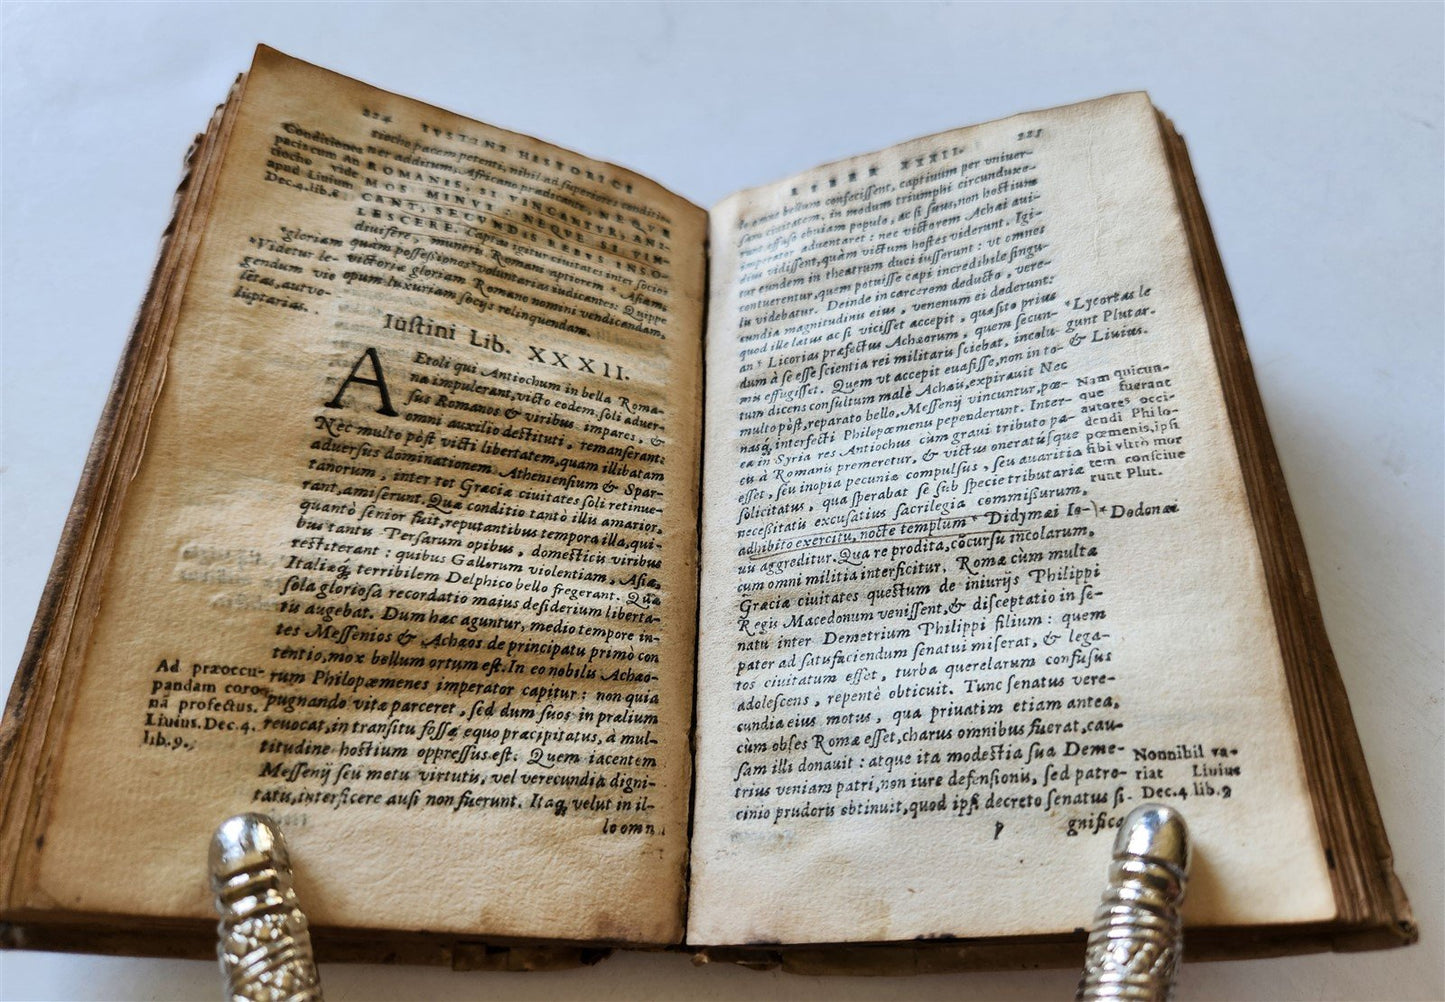 224 IVSTINI HISTORICI
Conditiones
paciscem an
tiocho, vide
apud Liuium
Dec.4.lib.6
tiocho pacem petenti, nihil ad superiores conditio-
nes additum, Africano prædicante, NEQVE
ROMANIS, SI VINCANTVR, ANI-
MOS MINVI: NEQVE, SI VIN-
CANT, SECVNDIS REBVS INSO-
LESCERE. Captas igitur ciuitates inter socios
diuisere, muneris Romani aptiorem * Asiam,
quàm possessionis voluptariæ iudicantes: Quippe
victoriæ gloriam Romano nomini vendicandam,
opum luxuriam socijs relinquendam.
*gloriam
*Videtur le-
gendum vic
setas, aut vo-
luptarias.
Iustini Lib. XXXII.
AEtoli qui Antiochum in bella Roma-
na impulerant, victo eodem, soli aduer-
sus Romanos & viribus impares, &
omni auxilio destituti, remanserant:
Nec multo pòst victi libertatem, quam illibatam
aduersus dominationem Atheniensium & Spar-
tanorum, inter tot Græciæ ciuitates soli retinue-
rant, amiserunt. Quæ conditio tantò illis amarior,
quantò senior fuit, reputantibus tempora illa, qui-
bus tantis Persarum opibus, domesticis viribus
restiterant: quibus Gallorum violentiam, Asiæ,
Italiæq; terribilem Delphico bello fregerant. Quæ
sola gloriosa recordatio maius desiderium liberta-
tis augebat. Dum hæc aguntur, medio tempore in-
tes Messenios & Achæos de principatu primò con
tentio, mox bellum ortum est. In eo nobilis Achæo-
rum Philopœmenes imperator capitur: non quia
pugnando vitæ parceret, sed dum suos in prælium
reuocat, in transitu fossæ equo præcipitatus, à mul-
titudine hostium oppressus est. Quem iacentem
Messenij seu metu virtutis, vel verecundia digni-
tatis, interficere ausi non fuerunt. Itaq; velut in il-
lo omn
Ad præoccu-
pandam coro-
nã profectus.
Liuius. Dec.4.
lib.9.
LIBER XXXII. 225
lo omne bellum confecissent, captiuum per vniuer-
sam ciuitatem, in modum triumphi circunduxe-
runt effuso obuiam populo, ac si suus, non hostium
imperator aduentaret: nec victorem Achæi aui-
dius vidissent, quàm victum hostes viderunt. Igi-
tur eundem in theatrum duci iusserunt: vt omnes
contuerentur, quem potuisse capi incredibile singu-
lis videbatur. Deinde in carcerem deducto, vere-
cundia magnitudinis eius, venenum ei dederunt:
quod ille lætus ac si vicisset accepit, quæsito prius
an * Licortas præfectus Achæorum, quem secun-
dum à se esse scientia rei militaris sciebat, incolu-
mis effugisset. Quem vt accepit euasisse, non in to-
tum dicens consultum malè Achæis, expirauit Nec
multo pòst, reparato bello, Messenij vincuntur, pœ-
nasq; interfecti Philopœmenis pependerunt. Inter-
ea in Syria rex Antiochus cùm graui tributo pa-
cis à Romanis premeretur, & victus oneratúsque
esset, seu inopia pecuniæ compulsus, seu auaritia
solicitatus, qua sperabat se sub specie tributariæ
necessitatis excusatius sacrilegia commissurum,
adhibito exercitu, nocte templum * Didymæi Io-
uis aggreditur. Qua re prodita, cõcursu incolarum,
cum omni militia interficitur. Romæ cùm multæ
Græciæ ciuitates questum de iniurijs Philippi
Regis Macedonum venissent, & disceptatio in se-
natu inter Demetrium Philippi filium: quem
pater ad satisfaciendum senatui miserat, & lega-
tos ciuitatum esset, turba querelarum confusus
adolescens, repentè obticuit. Tunc senatus vere-
cundia eius motus, qua priuatim etiam antea,
cùm obses Romæ esset, charus omnibus fuerat, cau-
sam illi donauit: atque ita modestia sua Deme-
trius veniam patri, non iure defensionis, sed patro-
cinio prudoris obtinuit, quod ipsi decreto senatus si-
p gnifica
*Lycortas le
gunt Plutar.
& Liuius.
Nam quicun-
que fuerant
autores occi-
dendi Philo-
pœmenis, ipsi
sibi vltrò mor
tem consciue
runt Plut.
* Dodonæi
Nonnihil va-
riat Liuius
Dec.4 lib.9